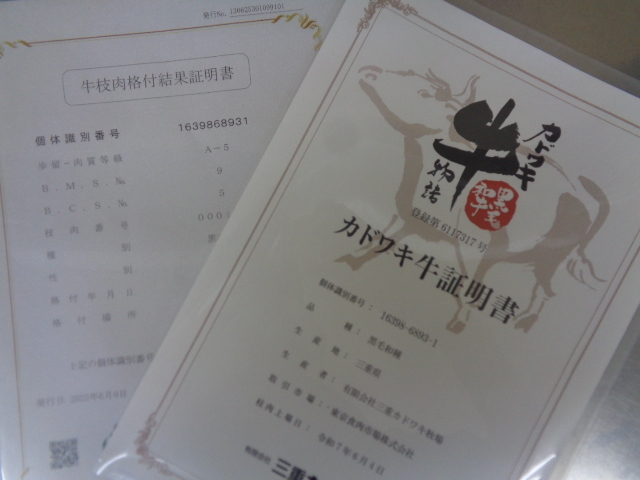 牛枝肉格付結果証明書
個体識別番号 1639868931
歩留－肉質等級 A－5
B．M．S．№ 9
B．C．S．№ 5
枝肉番号 000
種別 黒
性別
格付年月日
格付場所
上記の個体識別番号
発行日
カドワキ
牛
物語
黒毛和牛
登録第6117317号
カドワキ牛証明書
個体識別番号：16398-6893-1
品種：黒毛和種
生産地：三重県
生産者：有限会社三重カドワキ牧場
取引市場：東京食肉市場株式会社
枝肉上場日：令和7年6月4日
有限会社 三重